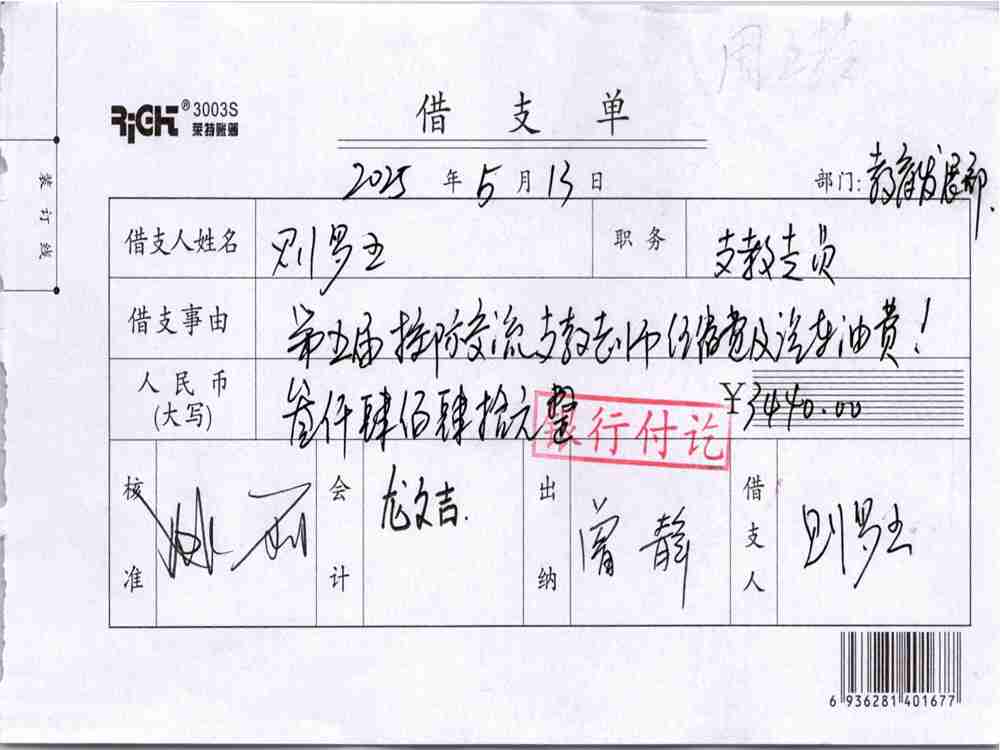 RiGHT® 3003S
莱特账簿
借支单
2025 年 5 月 13 日 部门: 教育发展部.
装订线
借支人姓名 则罗立 职务 支教专员
借支事由 第五届 交流支教老师 及汽车油费!
人民币(大写) 叁仟肆佰肆拾元整 ¥3440.00
银行付讫
核准 会计 龙文吉. 出纳 曾静 借支人 则罗立
6 936281 401677